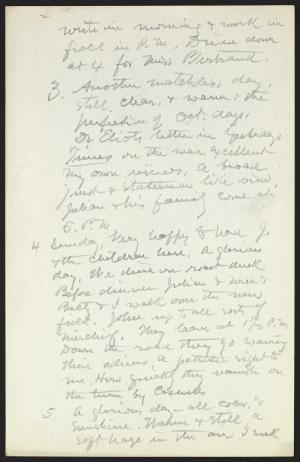 write in morning & work in
field in P.M. Drive down
at 4 for Miss
3. Another matchless day,
still, clear, & warm; the
perfection of Oct. days.
Dr Eliots letter in yesterdays
Times on the war, excellent
my own views. A broad,
just & statesman like view.
Julian & his family come at
5. P.M.
4 Sunday, Very happy to have J.
& the children here. A glorious
day. We dine on roast duck
Before dinner Julian &
Betty & I walk over the new
field. John up to all sorts of
mischief. They leave at 1/2 P.M.
Down the road they go waving
their adieus, a pathetic sight to
me. How quickly they vanish on
the turn by
5 A glorious day - all color &
sunshine. Warm & still a
soft haze in the air. I work